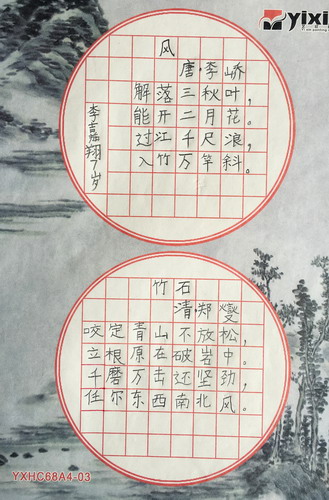 yixi
风
唐·李峤
解落三秋叶，
能开二月花。
过江千尺浪，
入竹万竿斜。
李嘉翔7岁
竹石
清·郑燮
咬定青山不放松，
立根原在破岩中。
千磨万击还坚劲，
任尔东西南北风。
YXHC68A4-03